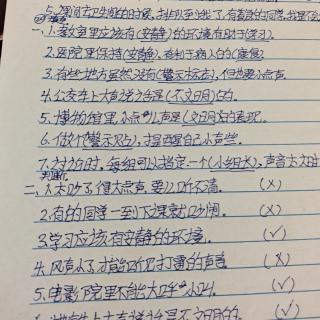 5.课间去卫生间的时候,
一、1.教室里应该有(安静)的环境有助于(学习).
2.医院里保持(安静),有利于病人的(康复)
3.有些地方虽然没有(警示标志),但也要小点声.
4.公交车上大声说话是(不文明)的.
5.博物馆里,小点声儿声是(文明)的表现.
6.做个(警示贴),提醒自己小声些.
7.讨论时,每组可以指定一个(小组长),声音太大时
二、1.太吵了得大点声,要么听不清. (×)
2.有的同学一到下课就吵闹. (×)
3.学习应该有安静的环境. (√)
4.风声小了才能听见打雷的声音 (×)
5.电影院里不能大呼小叫. (√)